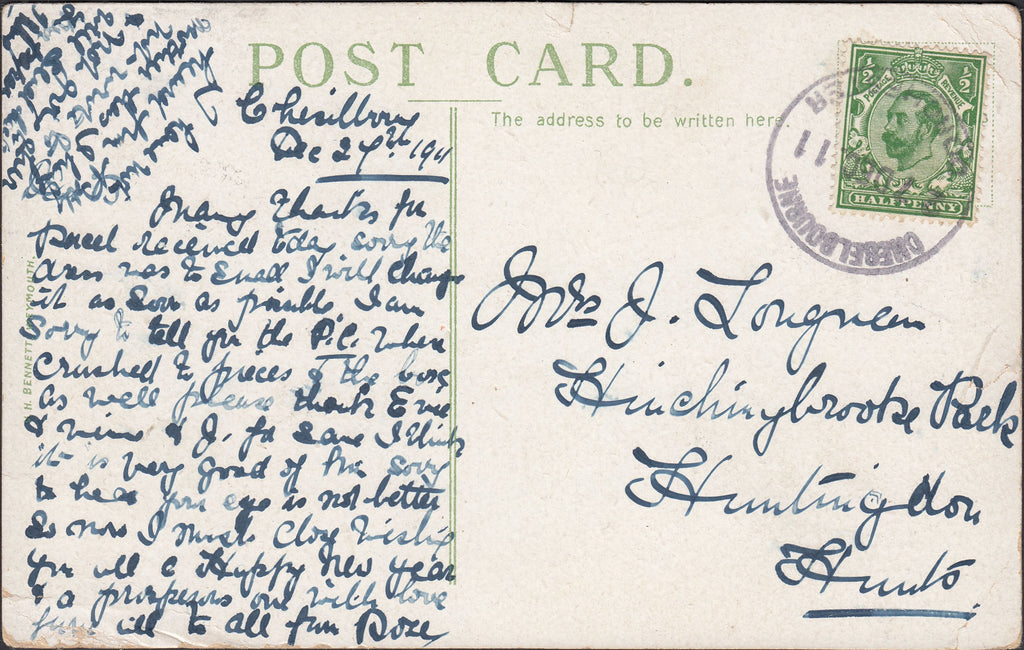 POST CARD.
The address to be written here.
Chesilbourne
Dec 27th. 1911
Many Thanks for
parcel received today sorry the
dress was to small I will change
it as soon as possible, I am
sorry to tell you the P.C. where
crushed to pieces & the box
as well please thank Evie
& Winnie & J. for same I think
it is very good of him sorry
to hear your eye is not better
so now I must close wishing
you all a Happy New year
& a prosperous one with love
from all to all from Rose
Mrs J. Longman
Hinchingbrooke Park
Huntingdon
Hunts
HALFPENNY
½ ½
POSTAGE REVENUE
CHESELBOURNE
DE 11
H. BENNETT WEYMOUTH.